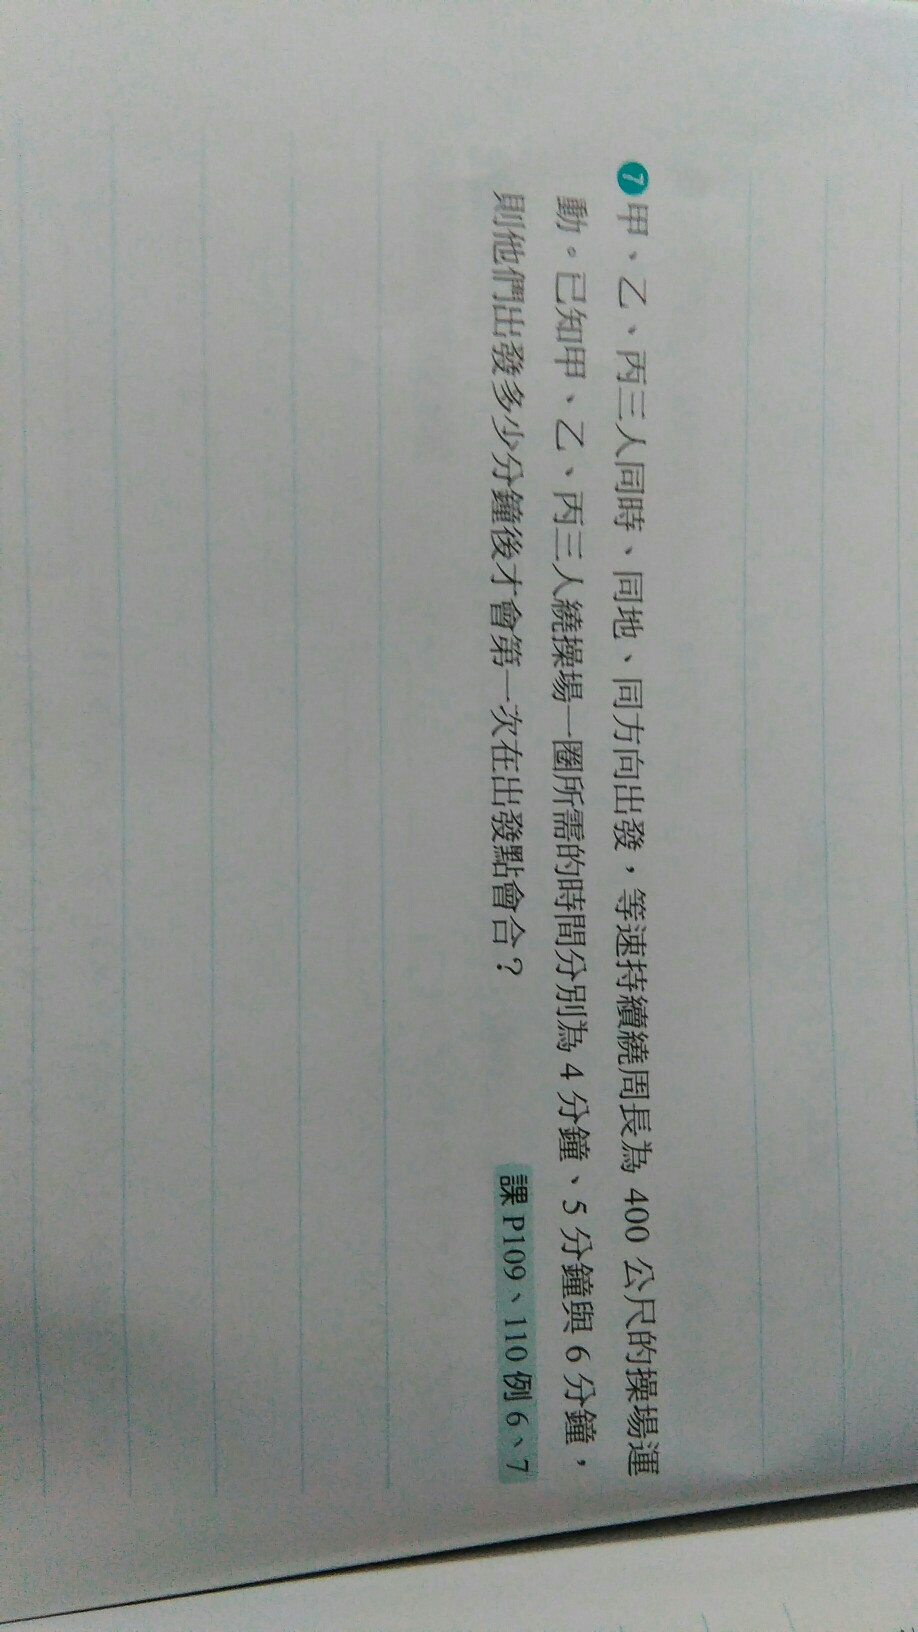 7 甲、乙、丙三人同時、同地、同方向出發，等速持續繞周長為 400 公尺的操場運
動。已知甲、乙、丙三人繞操場一圈所需的時間分別為 4 分鐘、5 分鐘與 6 分鐘，
則他們出發多少分鐘後才會第一次在出發點會合？ 課 P109、110 例 6、7